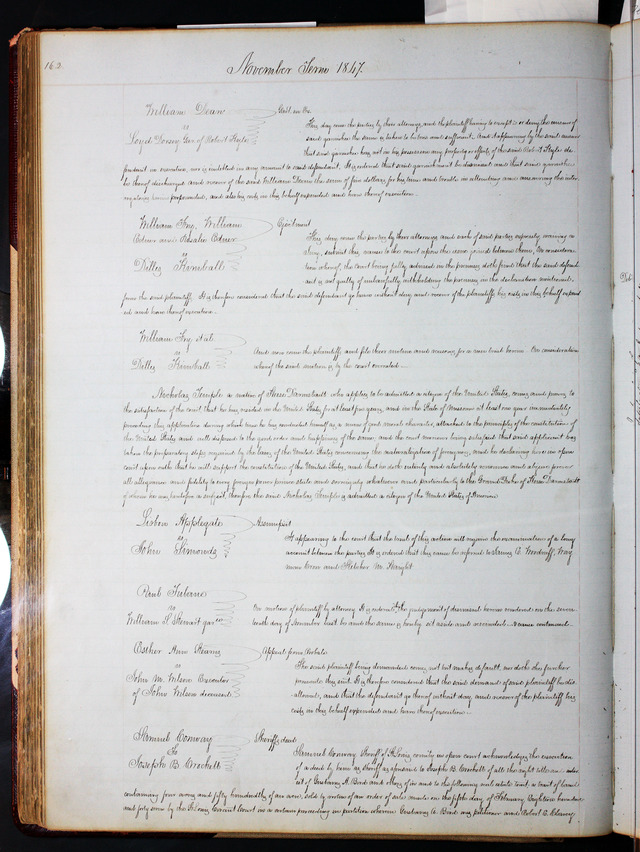 162.
November Term 1847.
William Dunn
vs
Loyd Dorsey Gar. of Robert Hyle
Gad. on Ex.
This day come the parties by their attorneys, and the plaintiff having to except or deny the answer of
said garnishee the same is taken to be true and sufficient. And it appearing by the said answer
that said garnishee has not in his possession any property or effects of the said Robt
fendant in execution, nor is indebted in any amount to said defendant. It is ordered that said garnishee be dismissed and that said garnishee
be thereof discharged and recover of the said William Dunn the sum of five dollars for his time and trouble in attending and answering the inter
rogatories herein propounded, and also his costs in this behalf expended and have thereof execution.
William Fry, William
Odner and Rosalie Odner
vs
Dilley Kimball
Ejectment
This day come the parties by their attorneys and each of said parties expressly waiving a
Jury, submit this cause to the court upon the issue joined between them, On considera
tion whereof, the court being fully advised in the premises doth find that the said defend
ant is not guilty of unlawfully withholding the premises in the declaration mentioned
from the said plaintiffs. It is therefore considered that the said defendant go hence without day and recover of the plaintiffs his costs in this behalf expend
ed and have thereof execution.
William Fry et al.
vs
Dilley Kimball
And now come the plaintiffs and file their motion and reasons for a new trial herein. On consideration
whereof the said motion is by the court overruled.
Nicholas Temple a native of Hesse Darmstadt who applies to be admitted a citizen of the United States, comes and proves to
the satisfaction of the court that he has resided in the United States for at least five years, and in the State of Missouri at least one year immediately
preceding this application during which time he has conducted himself as a man of good moral character, attached to the principles of the constitution of
the United States and well disposed to the good order and happiness of the same, and the court moreover being satisfied that said applicant has
taken the preparatory steps required by the laws of the United States concerning the naturalization of foreigners, and he declaring here in open
court upon oath that he will support the constitution of the United States, and that he doth entirely and absolutely renounce and abjure forever
all allegiance and fidelity to every foreign power prince state and sovereignty whatsoever and particularly to the Grand Duke of Hesse Darmstadt
of whom he was heretofore a subject, therefore the said Nicholas Temple is admitted a citizen of the United States of America.
Lisbon Applegate
vs
John Simonds
Assumpsit
It appearing to the court that the trial of this action will require the examination of a long
account between the parties. It is ordered that this cause be referred to James E. Woodruff, Way
man Crow and Fletcher M. Haight
Paul
vs
William S. Stewart gar
On motion of plaintiff by attorney It is ordered the judgment of dismissal herein rendered on the seven
teenth day of November last be and the same is hereby set aside and rescinded. & cause continued.
Esther Ann
vs
John M. Wilson Executor
of John Wilson deceased
Appeal from Probate
The said plaintiff being demanded comes not but makes default, nor doth she further
prosecute this suit. It is therefore considered that the said demand of said plaintiff be dis
allowed, and that the defendant go thereof without day and recover of the plaintiff his
costs in this behalf expended and have thereof execution.
Samuel Conway
To
Joseph B. Crockett
Sheriff's deed
Samuel Conway Sheriff of St. Louis county in open court acknowledges the execution
of a deed by him as Sheriff as aforesaid to Joseph B. Crockett of all the right title and inter
est of A. Bird and others of in and to the following real estate to wit, a tract of land
containing four acres and fifty hundredths of an acre, sold by virtue of an order of sale made on the fifth day of February Eighteen hundred
and forty seven by the St. Louis Circuit Court in a certain proceeding in partition wherein A. Bird was petitioner and Robert C.